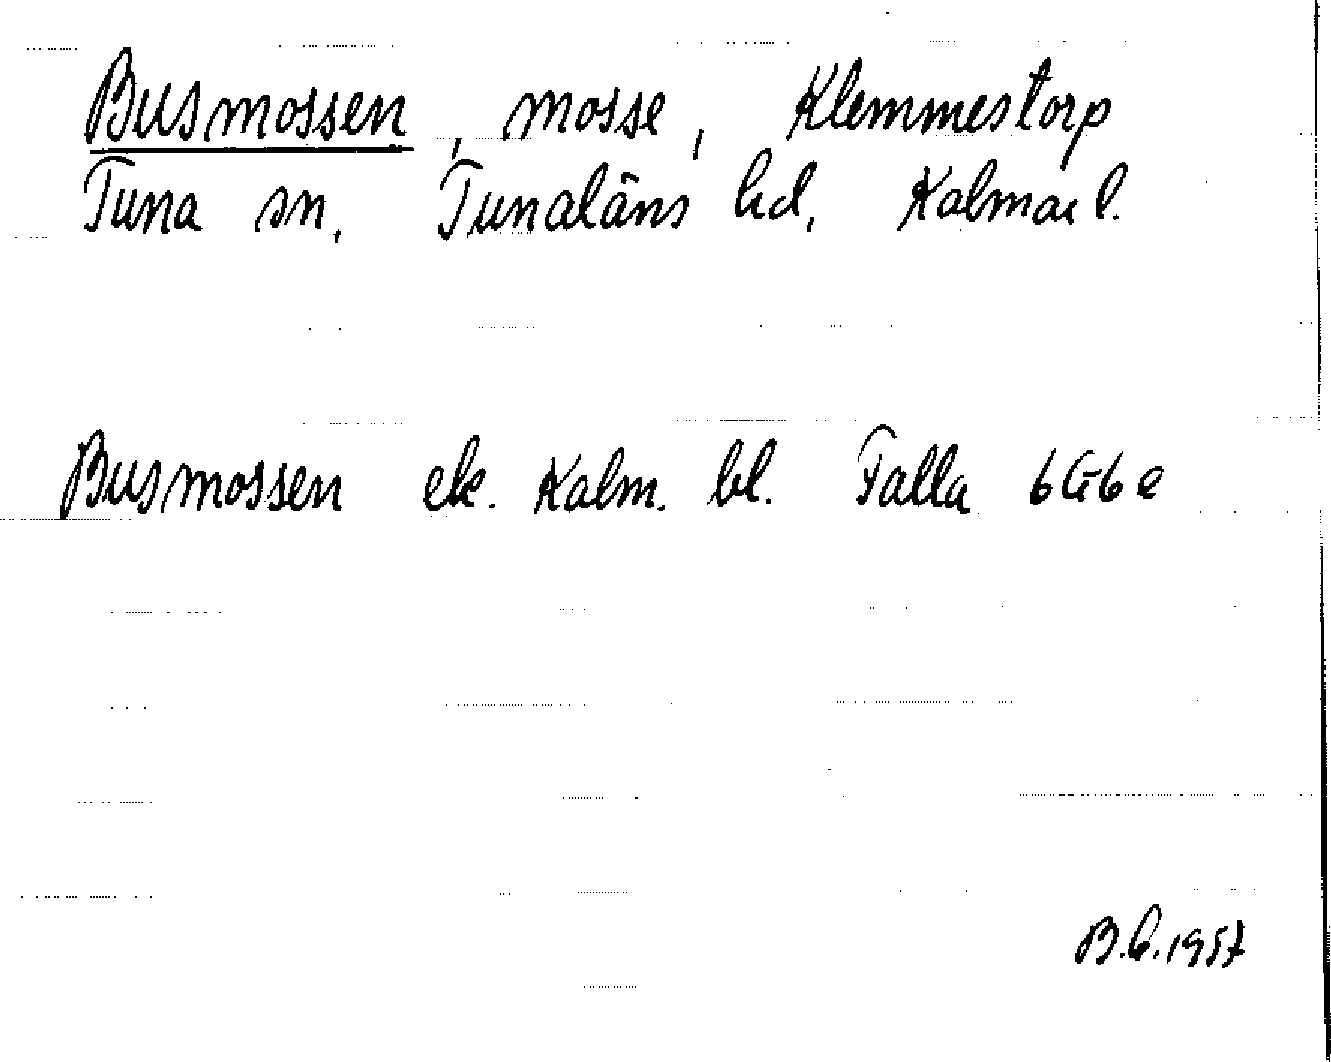 Busmossen, mosse, Klemmestorp
Tuna sn, Tunaläns hd, Kalmar l.
Busmossen ek. Kalm. bl. Falla 6G6e
B.G.1957